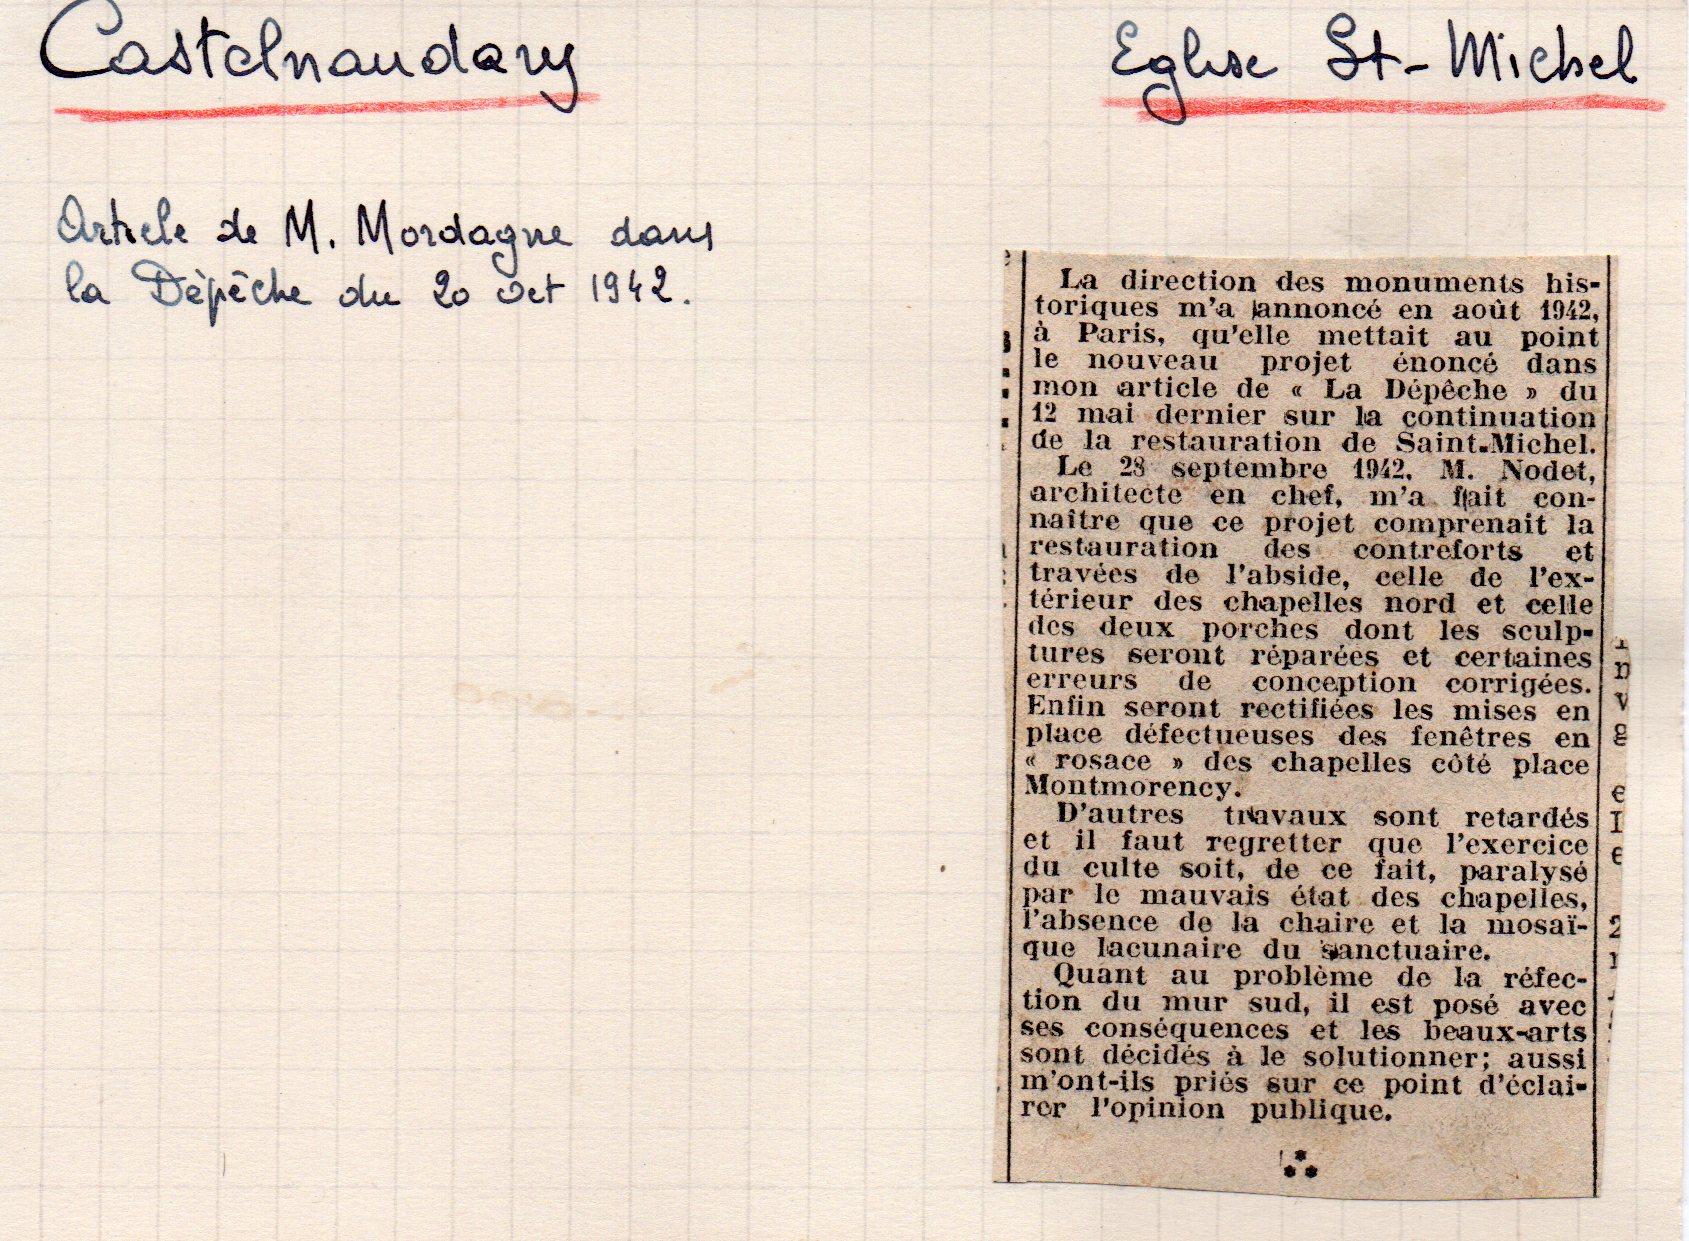 Castelnaudary
Eglise St-Michel
Article de M. Mordagne dans
la Dépêche du 20 oct 1942.
La direction des monuments his-
toriques m'a annoncé en août 1942,
à Paris, qu'elle mettait au point
le nouveau projet énoncé dans
mon article de « La Dépêche » du
12 mai dernier sur la continuation
de la restauration de Saint-Michel.
Le 28 septembre 1942, M. Nodet,
architecte en chef, m'a fait con-
naître que ce projet comprenait la
restauration des contreforts et
travées de l'abside, celle de l'ex-
térieur des chapelles nord et celle
des deux porches dont les sculp-
tures seront réparées et certaines
erreurs de conception corrigées.
Enfin seront rectifiées les mises en
place défectueuses des fenêtres en
« rosace » des chapelles côté place
Montmorency.
D'autres travaux sont retardés
et il faut regretter que l'exercice
du culte soit, de ce fait, paralysé
par le mauvais état des chapelles,
l'absence de la chaire et la mosaï-
que lacunaire du sanctuaire.
Quant au problème de la réfec-
tion du mur sud, il est posé avec
ses conséquences et les beaux-arts
sont décidés à le solutionner; aussi
m'ont-ils priés sur ce point d'éclai-
rer l'opinion publique.